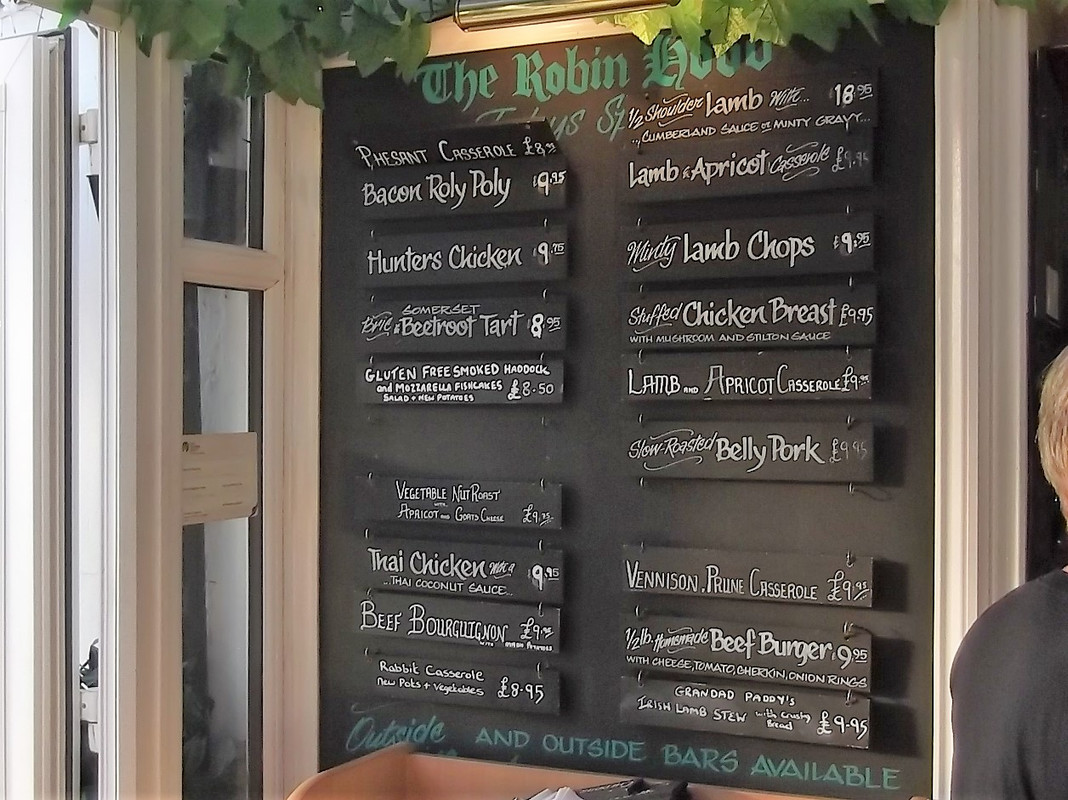 The Robin Hood
PHESANT CASSEROLE £8.95
Bacon Roly Poly £9.95
Hunters Chicken £9.75
SOMERSET
Brie & Beetroot Tart £8.95
GLUTEN FREE SMOKED HADDOCK
and MOZZARELLA FISHCAKES £8.50
SALAD + NEW POTATOES
VEGETABLE NUT ROAST
WITH
APRICOT AND GOATS CHEESE £9.95
Thai Chicken £9.95
...THAI COCONUT SAUCE...
BEEF BOURGUIGNON £9.95
Rabbit Casserole
New Pots + Vegetables £8.95
1/2 Shoulder Lamb With... £18.95
..CUMBERLAND SAUCE or MINTY GRAVY...
Lamb & Apricot Casserole £9.95
Minty Lamb Chops £9.95
Stuffed Chicken Breast £9.95
WITH MUSHROOM AND STILTON SAUCE
LAMB AND APRICOT CASSEROLE £9.95
Slow-Roasted Belly Pork £9.95
VENNISON, PRUNE CASSEROLE £9.95
1/2lb. Homemade Beef Burger £9.95
WITH CHEESE, TOMATO, GHERKIN, ONION RINGS
GRANDAD PADDY'S
IRISH LAMB STEW with Crusty Bread £9.95
Outside
AND OUTSIDE BARS AVAILABLE